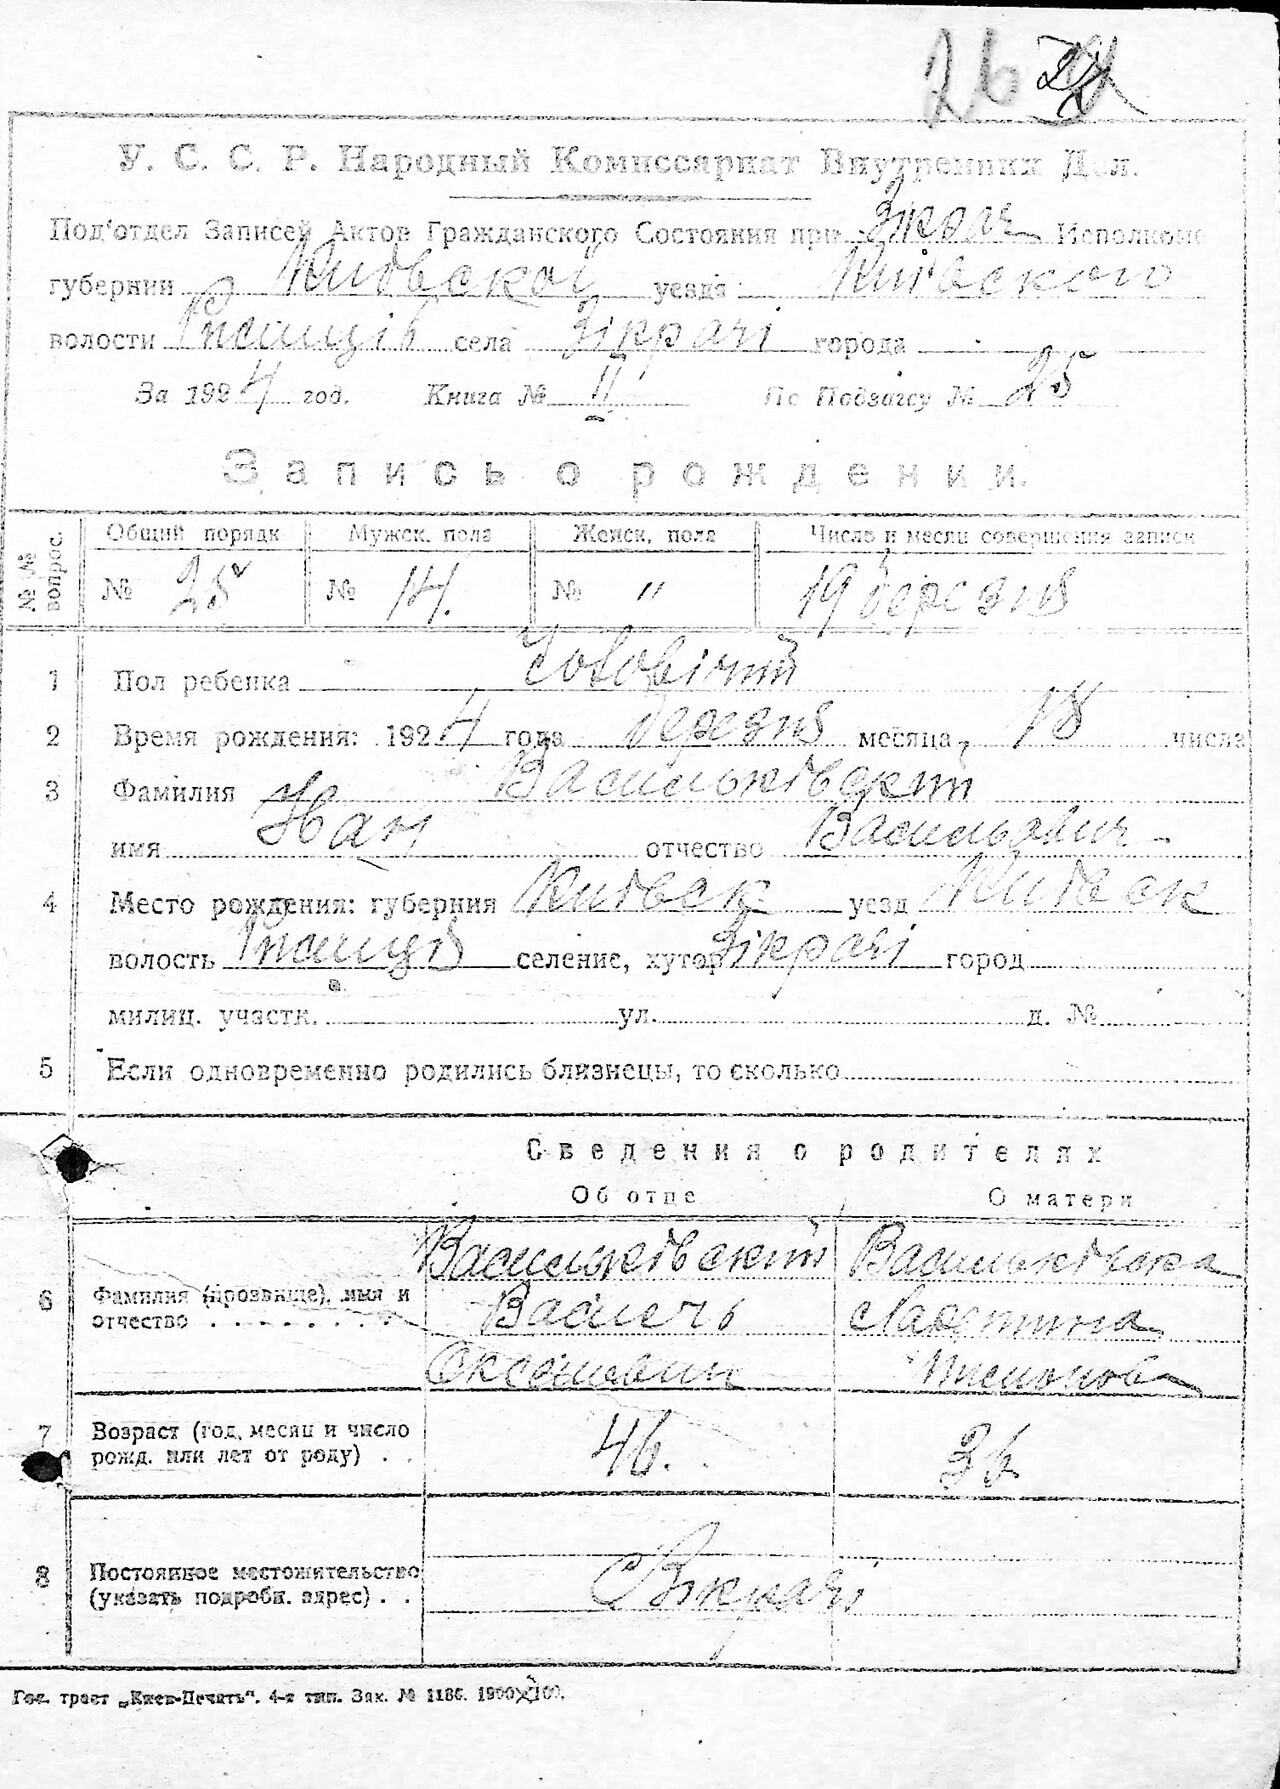 26
У. С. С. Р. Народный Комиссариат Внутренних Дел.
Под'отдел Записей Актов Гражданского Состояния при Исполкоме
губернии Київской уезда Київського
волости села Зікрачі города
За 1924 год. Книга № II По Подзагсу № 25
Запись о рождении.
№ № вопрос. Общий порядк Мужск. пола Женск. пола Число и месяц совершения записи
№ 25 № 14. № " 19 березня
1 Пол ребенка Чоловічий
2 Время рождения: 1924 года березня месяца, 18 числа
3 Фамилия Васильківський
имя Іван отчество Васильович
4 Место рождения: губерния Київськ уезд Київськ
волость селение, хутор Зікрачі город
милиц. участк. ул. д. №
5 Если одновременно родились близнецы, то сколько
Сведения о родителях
Об отце О матери
6 Фамилия (прозвище), имя и отчество Васильківський Васильківська
Василь
7 Возраст (год, месяц и число рожд. или лет от роду) 46. 36
8 Постоянное местожительство (указать подробн. адрес) Зікрачі
Гос. трест „Киев-Печать". 4-я тип. Зак. № 1186. 1900×100.